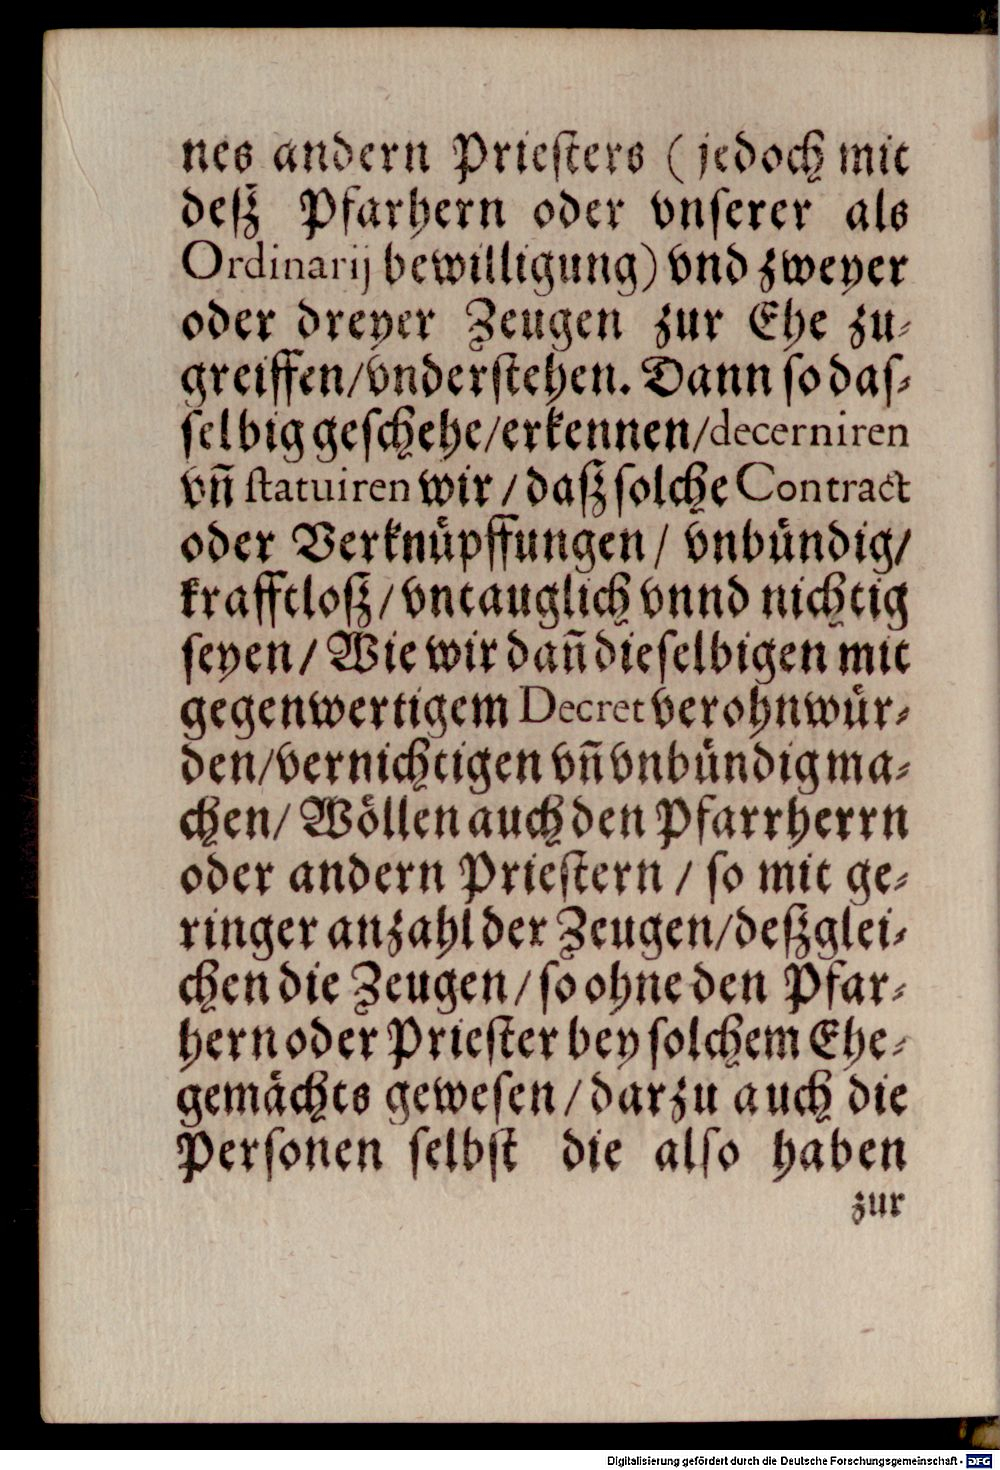 nes andern Priesters (jedoch mit
deß Pfarhern oder vnserer als
Ordinarij bewilligung) vnd zweyer
oder dreyer Zeugen zur Ehe zu-
greiffen/vnderstehen. Dann so das-
selbig geschehe/erkennen/decerniren
vñ statuiren wir / daß solche Contract
oder Verknüpffungen / vnbündig/
krafftloß/vntauglich vnnd nichtig
seyen / Wie wir dañ dieselbigen mit
gegenwertigem Decret verohnwür-
den/vernichtigen vñ vnbündig ma-
chen/ Wöllen auch den Pfarrherrn
oder andern Priestern / so mit ge-
ringer anzahl der Zeugen/deßglei-
chen die Zeugen/so ohne den Pfar-
hern oder Priester bey solchem Ehe-
gemächts gewesen / darzu auch die
Personen selbst die also haben
zur
Digitalisierung gefördert durch die Deutsche Forschungsgemeinschaft - DFG